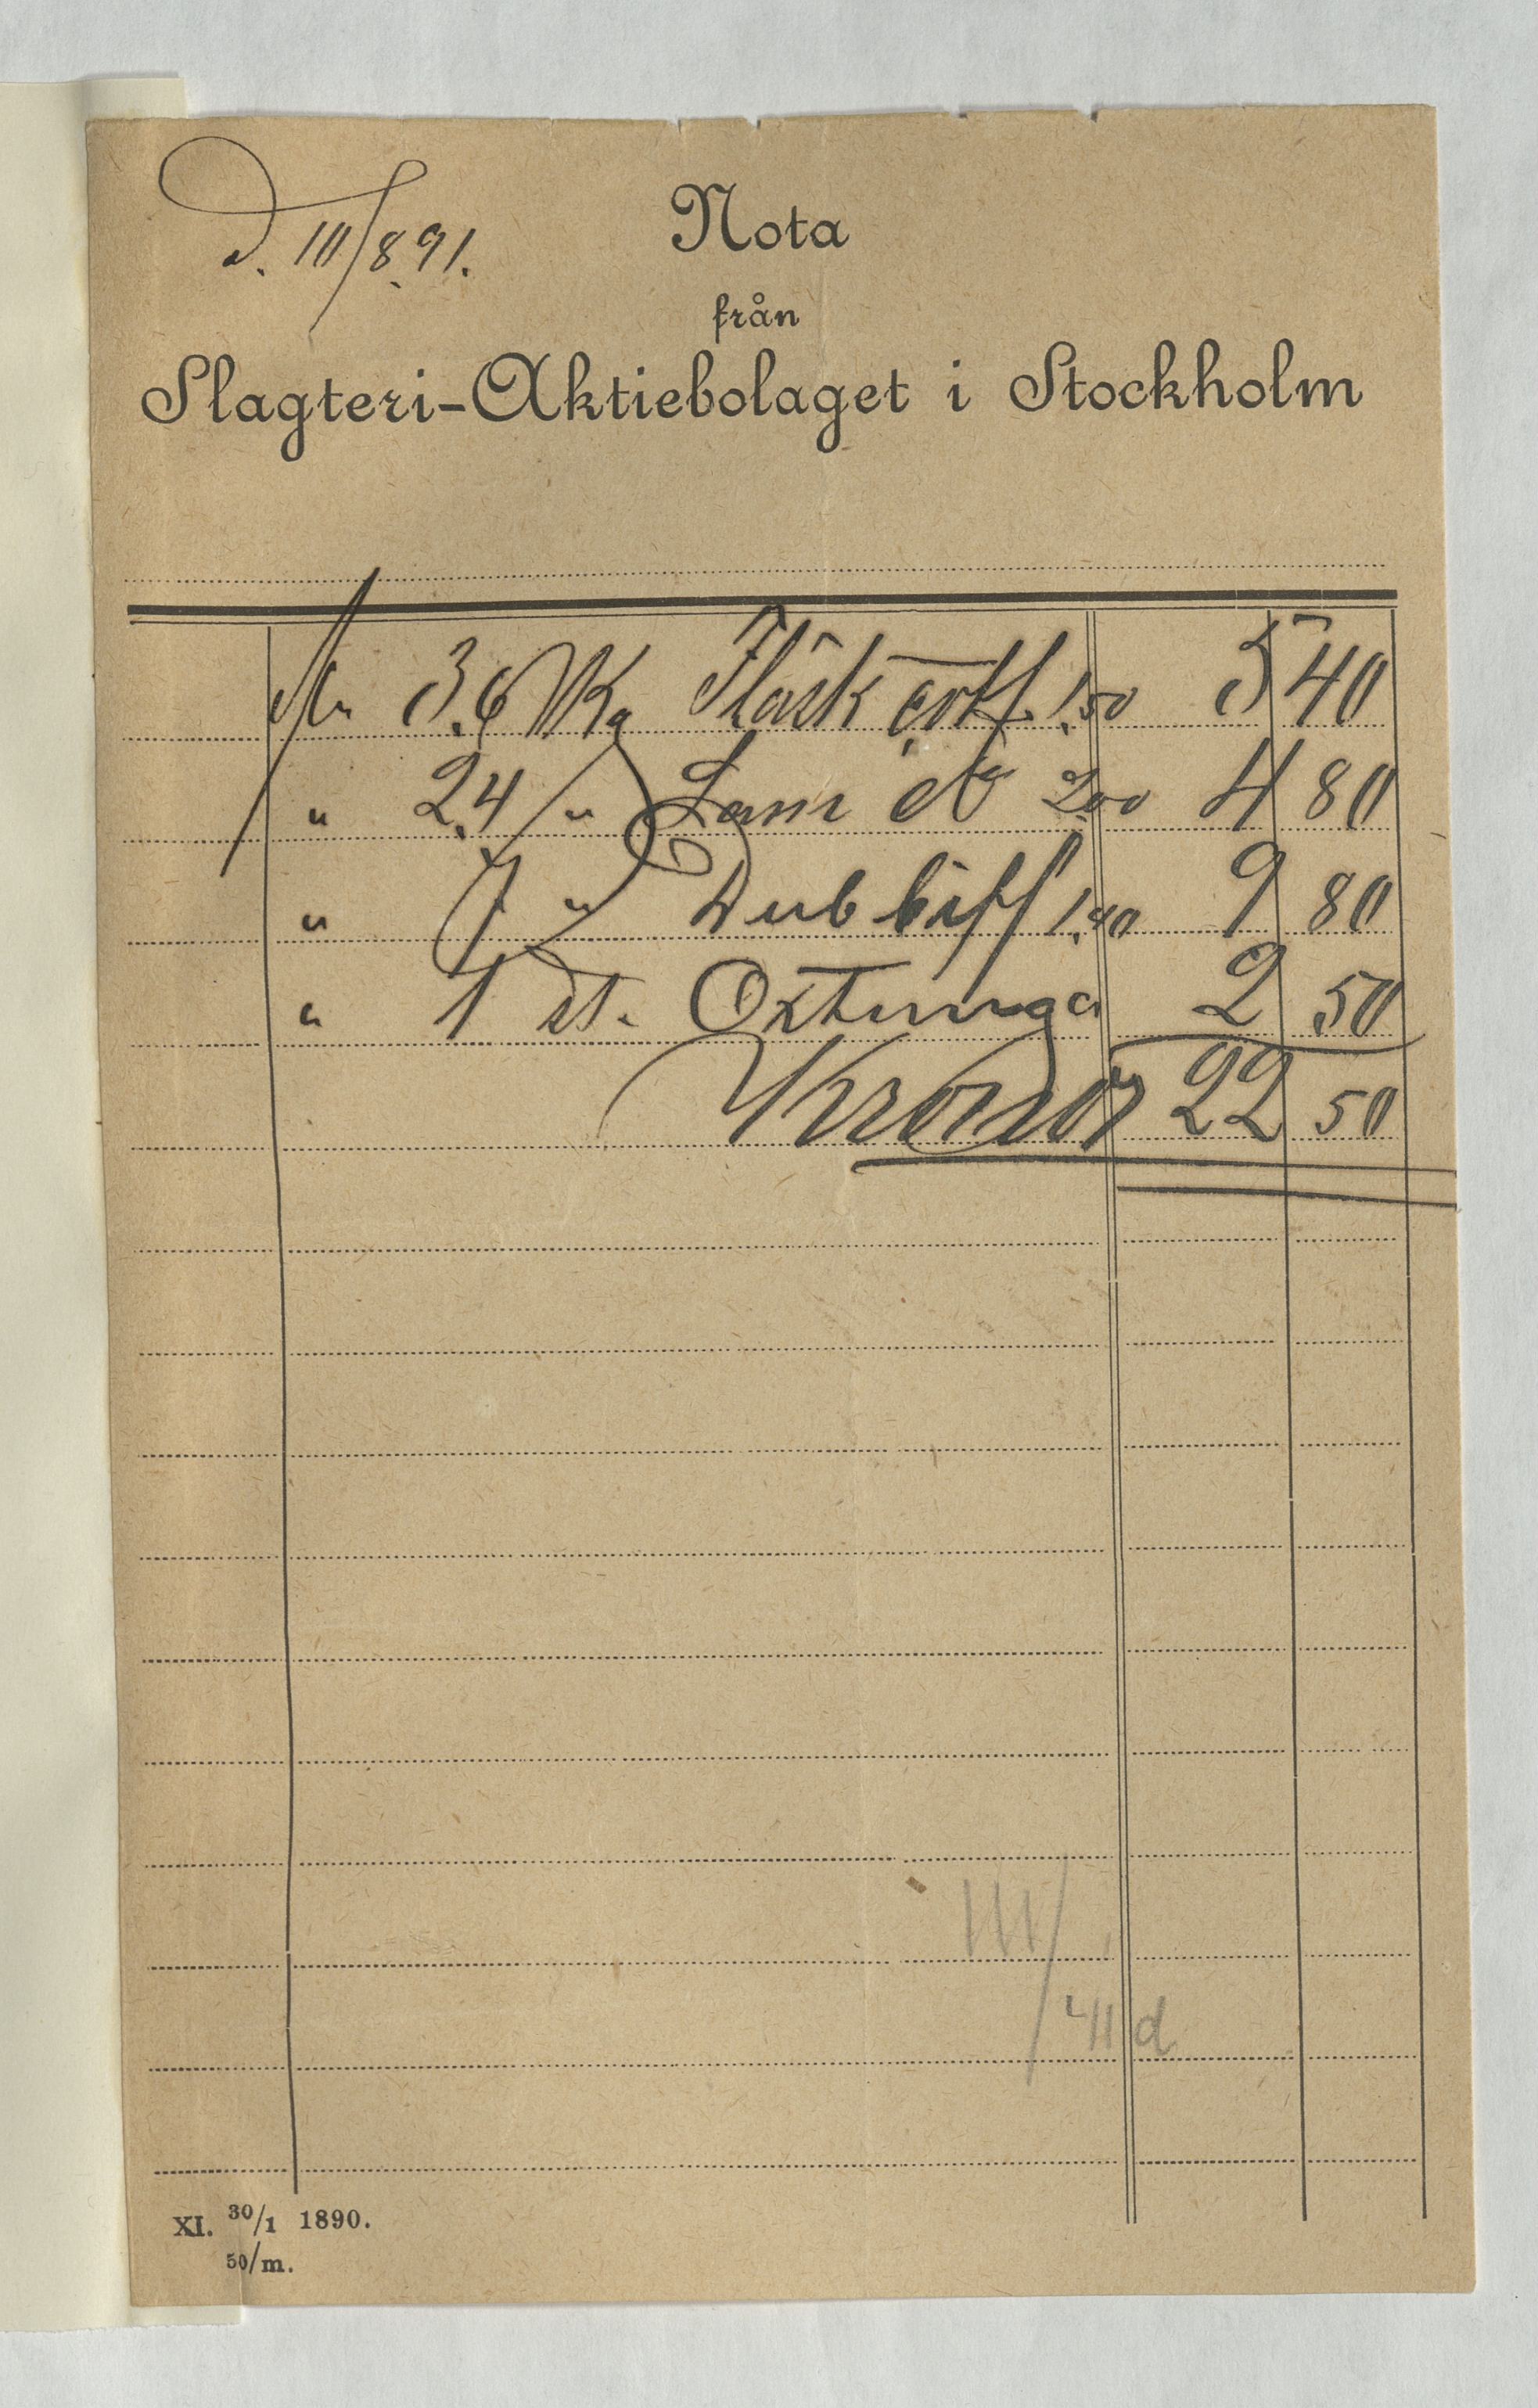 d. 10/8.91.
Nota
från
Slagteri-Aktiebolaget i Stockholm
3.6 Kg Fläsk cotl. 1.50 5 40
" 2.4 / " Lam do 2.00 4 80
" 7 " Dubbiff 1.40 9 80
" 1 st. Oxtunga 2 50
Kronor 22 50
III/
411 d
XI. 30/1 1890.
50/m.